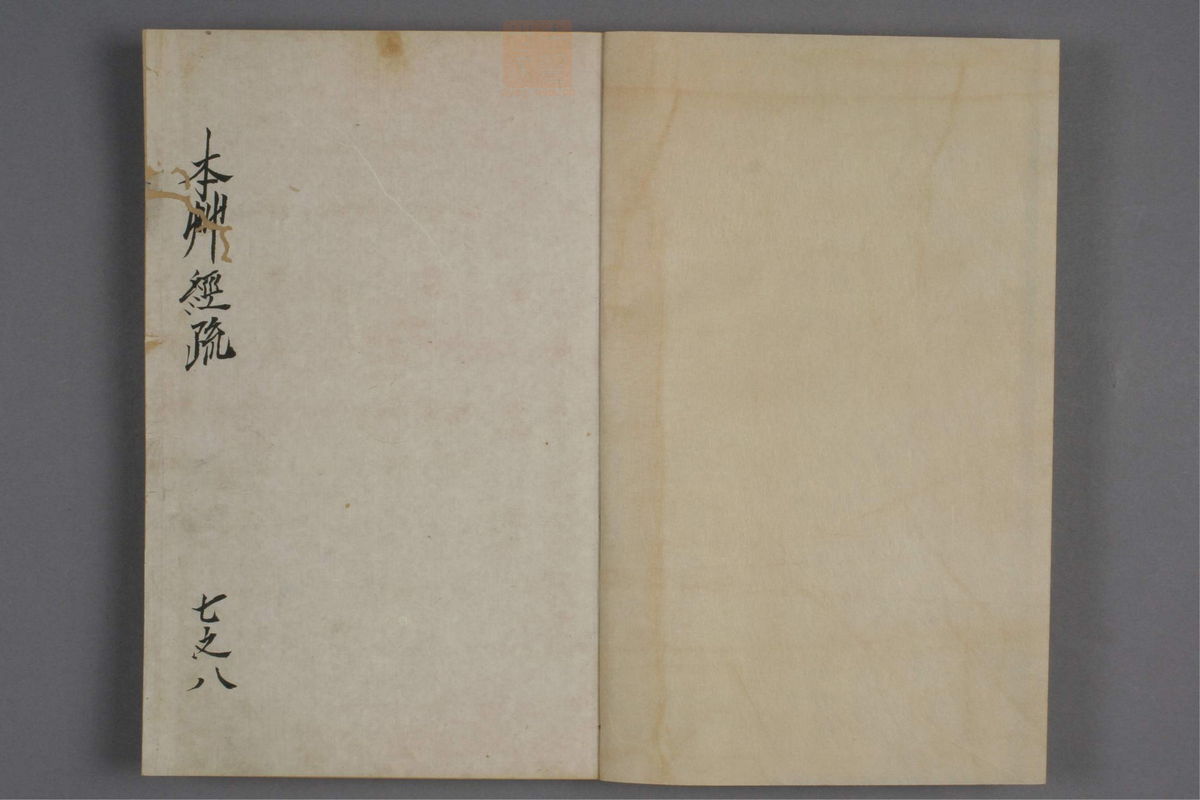 本艸經疏
七之八